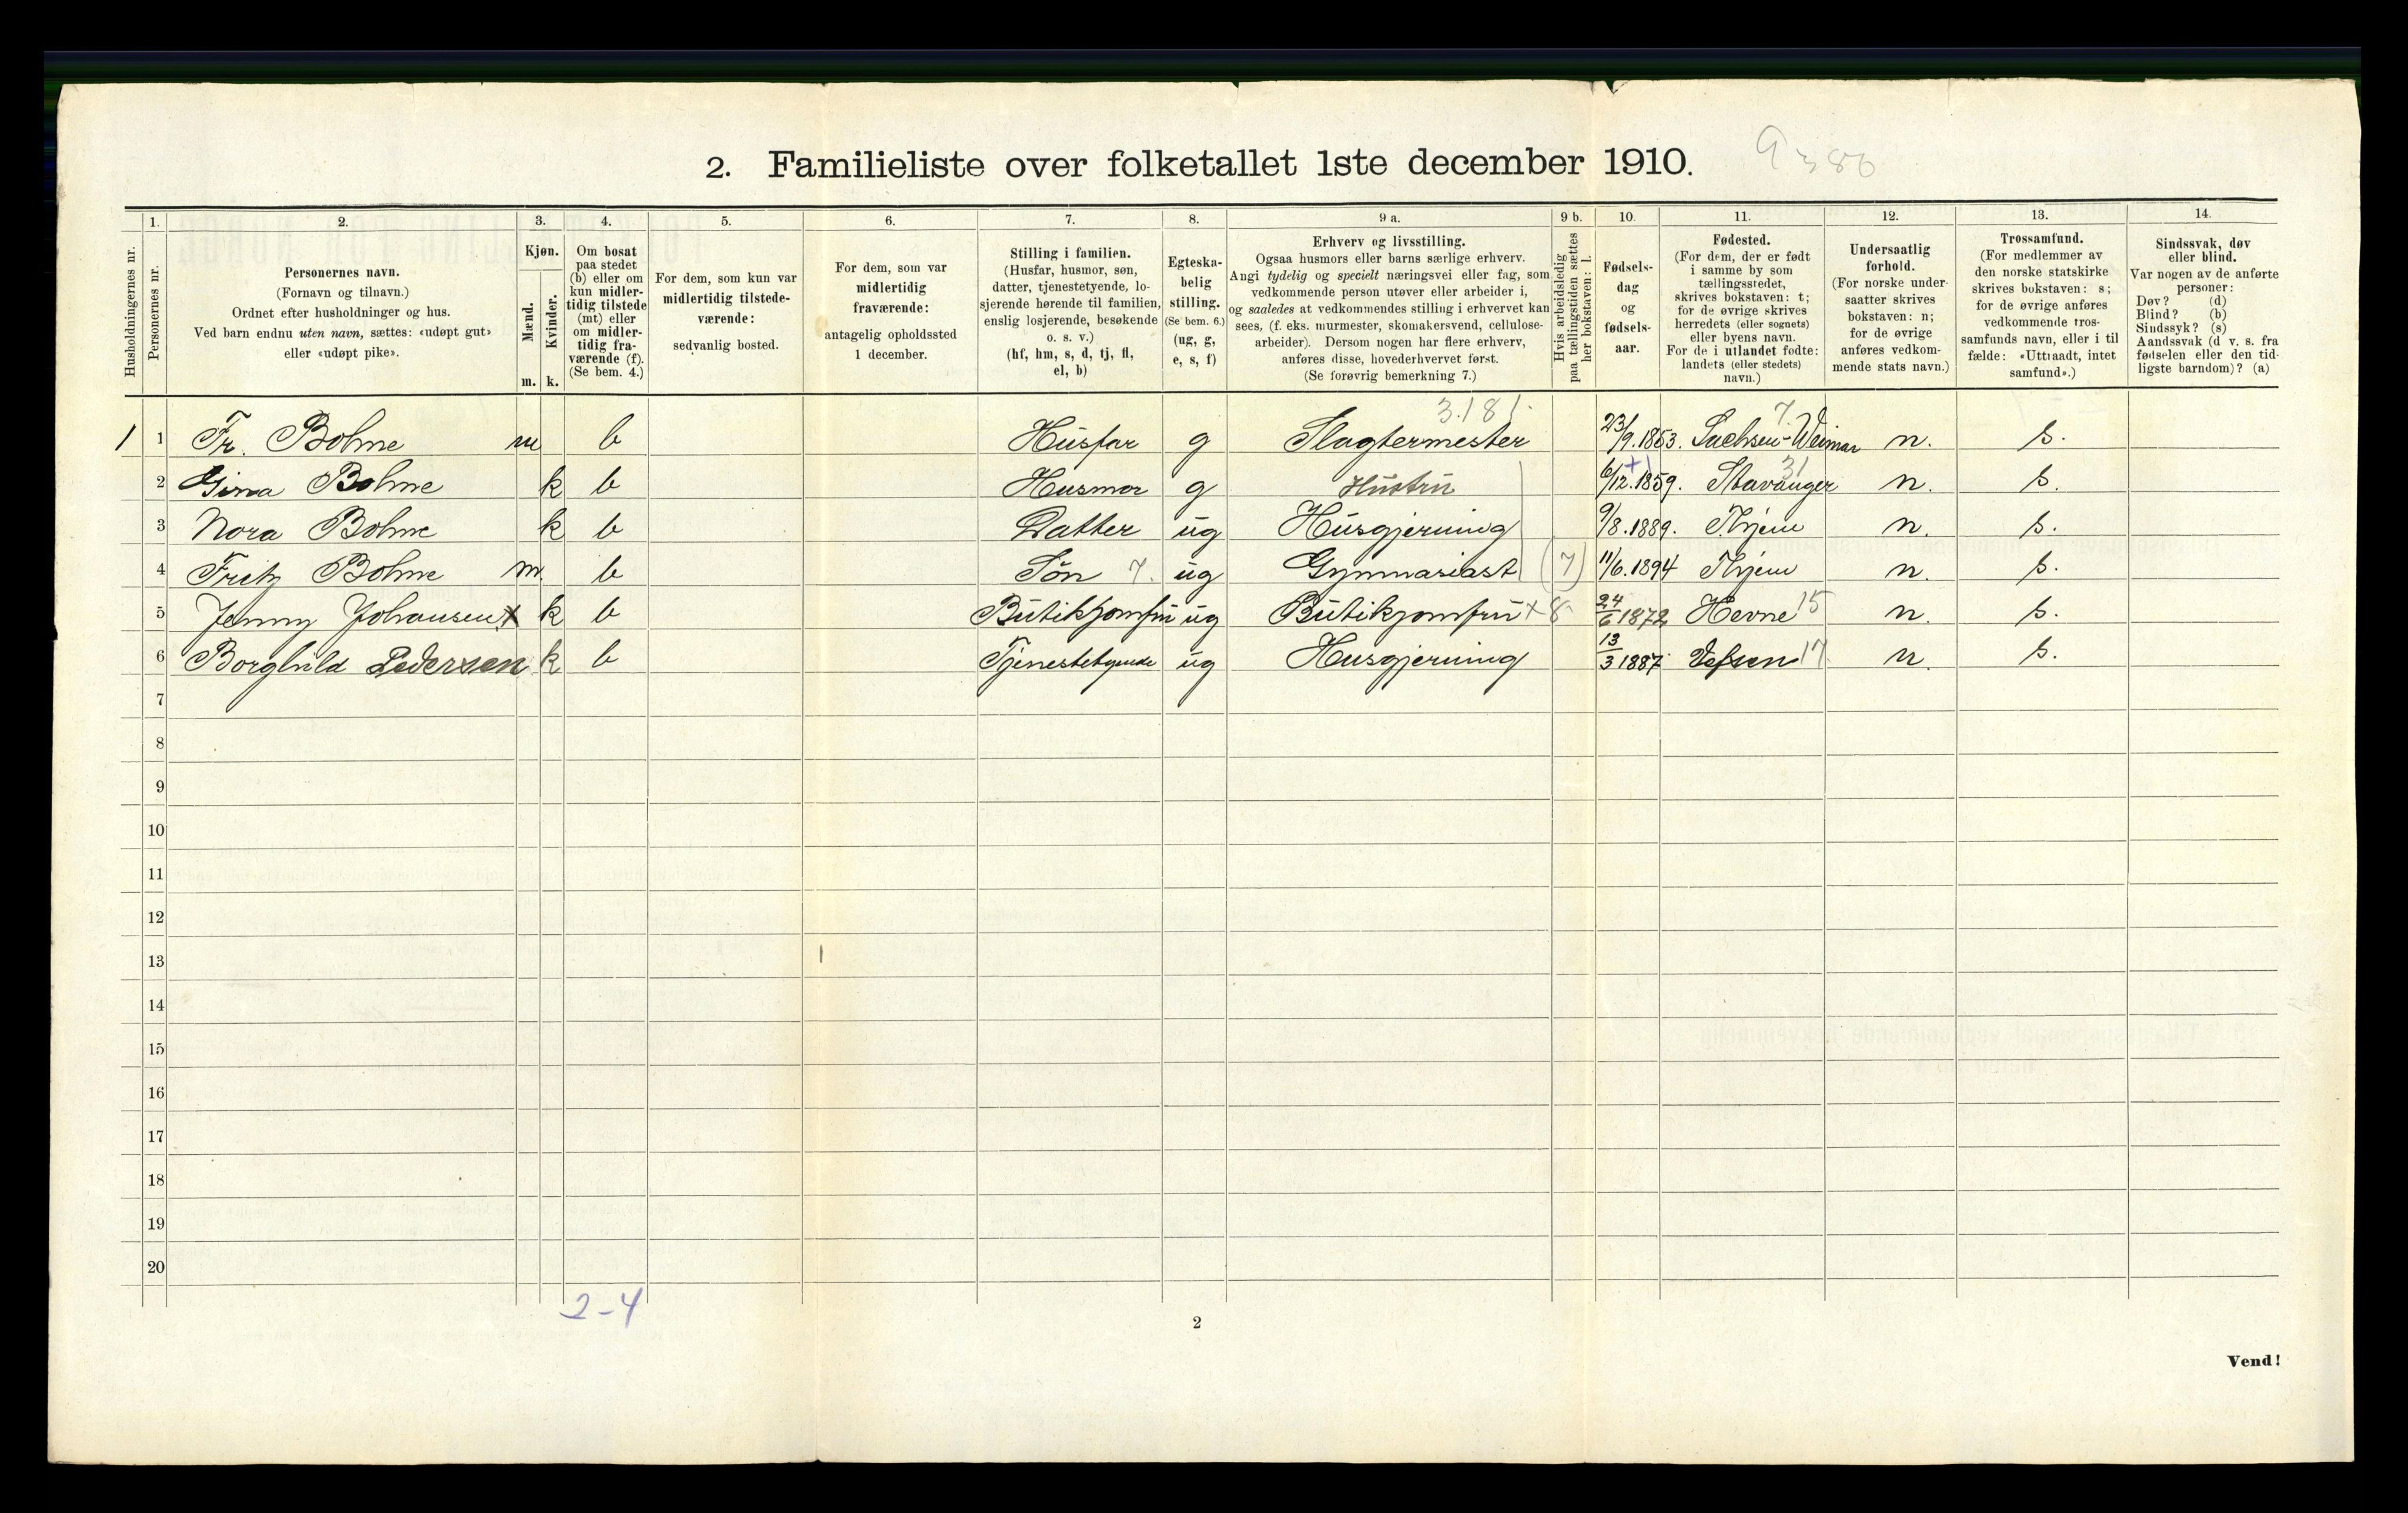 2. Familieliste over folketallet 1ste december 1910. 9380
Husholdningernes nr.
1.
Personernes nr.
2.
Personernes navn.
(Fornavn og tilnavn.)
Ordnet efter husholdninger og hus.
Ved barn endnu uten navn, sættes: «udøpt gut»
eller «udøpt pike».
3.
Kjøn.
Mænd.
m.
Kvinder.
k.
4.
Om bosat
paa stedet
(b) eller om
kun midler-
tidig tilstede
(mt) eller
om midler-
tidig fra-
værende (f).
(Se bem. 4.)
5.
For dem, som kun var
midlertidig tilstede-
værende:
sedvanlig bosted.
6.
For dem, som var
midlertidig
fraværende:
antagelig opholdssted
1 december.
7.
Stilling i familien.
(Husfar, husmor, søn,
datter, tjenestetyende, lo-
sjerende hørende til familien,
enslig losjerende, besøkende
o. s. v.)
(hf, hm, s, d, tj, fl,
el, b)
8.
Egteska-
belig
stilling.
(Se bem. 6.)
(ug, g,
e, s, f)
9 a.
Erhverv og livsstilling.
Ogsaa husmors eller barns særlige erhverv.
Angi tydelig og specielt næringsvei eller fag, som
vedkommende person utøver eller arbeider i,
og saaledes at vedkommendes stilling i erhvervet kan
sees, (f. eks. murmester, skomakersvend, cellulose-
arbeider). Dersom nogen har flere erhverv,
anføres disse, hovederhvervet først.
(Se forøvrig bemerkning 7.)
9 b.
Hvis arbeidsledig
paa tællingstiden sættes
her bokstaven: l.
10.
Fødsels-
dag
og
fødsels-
aar.
11.
Fødested.
(For dem, der er født
i samme by som
tællingsstedet,
skrives bokstaven: t;
for de øvrige skrives
herredets (eller sognets)
eller byens navn.
For de i utlandet fødte:
landets (eller stedets)
navn.)
12.
Undersaatlig
forhold.
(For norske under-
saatter skrives
bokstaven: n;
for de øvrige
anføres vedkom-
mende stats navn.)
13.
Trossamfund.
(For medlemmer av
den norske statskirke
skrives bokstaven: s;
for de øvrige anføres
vedkommende tros-
samfunds navn, eller i til-
fælde: «Uttraadt, intet
samfund».)
14.
Sindssvak, døv
eller blind.
Var nogen av de anførte
personer:
Døv? (d)
Blind? (b)
Sindssyk? (s)
Aandssvak (d v. s. fra
fødselen eller den tid-
ligste barndom)? (a)
3.181. 7.
1 1 Fr. Bohme m b Husfar g Slagtermester 23/9.1853. Sachsen-Weimar n. s.
2 Gina Bohme k b Husmor g Hustru 6/12.1859. Stavanger 31 n. s.
3 Nora Bohme k b Datter ug Husgjerning 9/8.1889. Thjem n. s.
4 Fritz Bohme m. b Søn 7. ug Gymnasiast (7) 11/6.1894 Thjem n. s.
5 Jenny Johansen x k b Butikjomfru ug Butikjomfru x 8 24/6 1872 Hevne 15 n. s.
6 Borghild Pedersen k b Tjenestetyende ug Husgjerning 13/3 1887 Vefsen 17 n. s.
7
8
9
10
11
12
13
14
15
16
17
18
19
20
2-4
2
Vend!